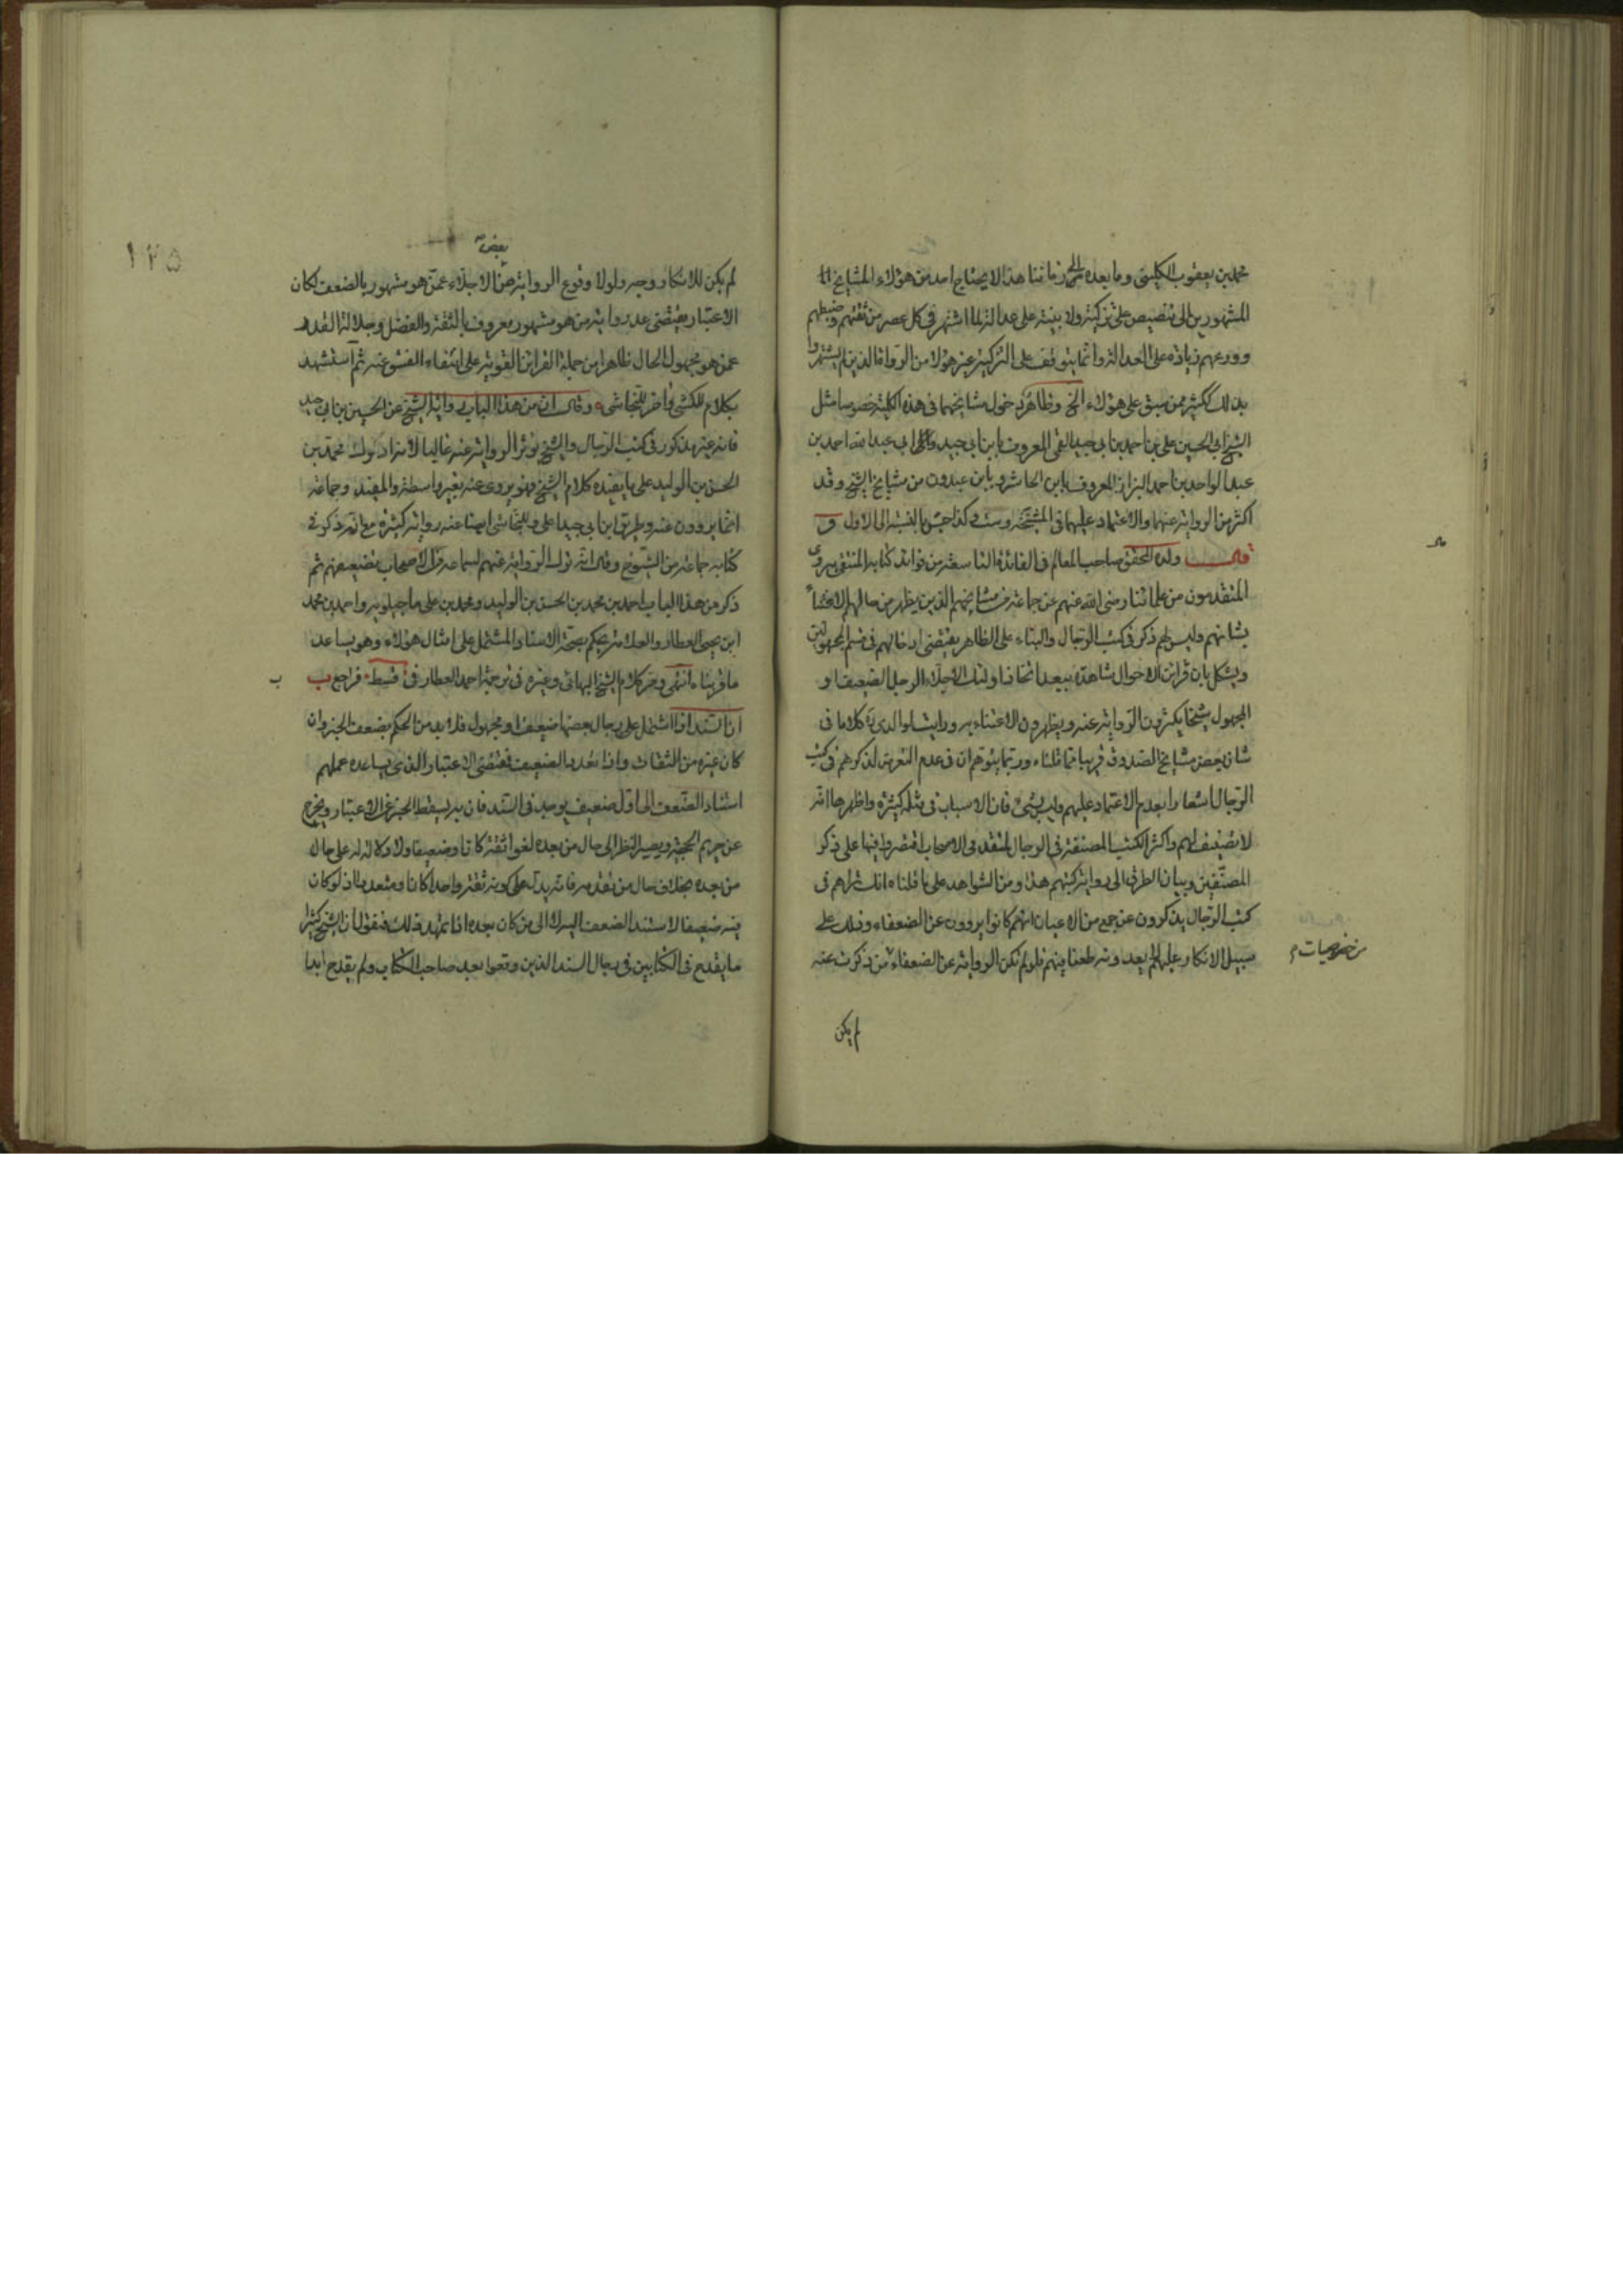 محمد بن يعقوب الكليني وما بعده الى زماننا هذا لا يحتاج احد من هؤلاء المشايخ
المشهورين الى تنصيص على تزكية ولا بينة على عدالة لما اشتهر في كل عصر من ثقتهم وضبطهم
وورعهم زيادة على العدالة وانما يتوقف على التزكية غير هؤلاء من الرواة الذين لم يشتهروا
بذلك ككثير ممن سبق على هؤلاء الخ وظاهره دخول مشايخهما في هذه الكلية خصوصا مثل
الشيخ ابي الحسين علي بن احمد بن ابي جيد القمي المعروف بابن ابي جيد وابي عبد الله احمد بن
عبد الواحد بن احمد البزاز المعروف بابن الحاشر وبابن عبدون من مشايخ الشيخ وقد
اكثر من الرواية عنهما والاعتماد عليهما في المشيخة وست وكذا جش بالنسبة الى الاول و
قال ولده المحقق صاحب المعالم في الفائدة التاسعة من فوائد كتابه المنتقى يروي
المتقدمون من علمائنا رضي الله عنهم عن جماعة من مشايخهم الذين يظهر من حالهم الاعتناء
بشانهم وليس لهم ذكر في كتب الرجال والبناء على الظاهر يقتضي ادخالهم في قسم المجهولين
ويشكل بان قرائن الاحوال شاهدة ببعد اتخاذ اولئك الاجلاء الرجل الضعيف او
المجهول شيخا يكثرون الرواية عنه ويظهرون الاعتناء به ورايت لوالدي ره كلاما في
شان بعض مشايخ الصدوق قريبا مما قلناه وربما يتوهم ان في عدم التعرض لذكرهم في كتب
الرجال اشعارا بعدم الاعتماد عليهم وليس بشئ فان الاسباب في مثله كثيرة واظهرها انه
لا تصنيف لهم واكثر الكتب المصنفة في الرجال لمتقدمي الاصحاب اقتصروا فيها على ذكر
المصنفين وبيان الطرق الى رواية كتبهم هذا ومن الشواهد على ما قلناه انك تراهم في
كتب الرجال يذكرون عن جمع من الاعيان انهم كانوا يروون عن الضعفاء وذلك على
سبيل الانكار عليهم يعد ونه طعنا فيهم فلو لم تكن الرواية عن الضعفاء من ذكرت عنه
من خصوصيات
لم يكن
١٢٥
بعض
لم يكن للانكار وجه ولولا وقوع الرواية من الاجلاء عمن هو مشهور بالضعف لكان
الاعتبار يقتضي عد رواية من هو مشهور معروف بالثقة والفضل وجلالة القدر
عمن هو مجهول الحال ظاهرا من جملة القرائن القوية على انتفاء الفسق عنه ثم استشهد
بكلام للكشي واخر للنجاشي وقال ان من هذا الباب رواية الشيخ عن الحسين بن ابي جيد
فانه غير مذكور في كتب الرجال والشيخ يؤثر الرواية عنه غالبا لانه ادرك محمد بن
الحسن بن الوليد على ما يفيده كلام الشيخ فهو يروي عنه بغير واسطة والمفيد وجماعة
انما يروون عنه وطريق ابن ابي جيد اعلى وللنجاشي ايضا عنه رواية كثيرة مع انه ذكر في
كتابه جماعة من الشيوخ وقال انه ترك الرواية عنهم لسماعه من الاصحاب تضعيفهم ثم
ذكر من هذا الباب احمد بن محمد بن الحسن بن الوليد ومحمد بن علي ماجيلويه واحمد بن محمد
ابن يحيى العطار والعلامة يحكم بصحة الاسناد المشتمل على امثال هؤلاء وهو يساعد
ما قربناه انتهى ومر كلام الشيخ البهائي وغيره في ترجمة احمد العطار في قسط فراجع ب
ان السند اذا اشتمل على رجال بعضها ضعيف او مجهول فلا بد من الحكم بضعف الخبر وان
كان غيره من الثقات واذا تعدد الضعيف فمقتضى الاعتبار الذي يساعده عملهم
استناد الضعف الى اول ضعيف يوجد في السند فان به يسقط الخبر عن الاعتبار ويخرج
عن حريم الحجية ويصير النظر الى حال من بعده لغوا ثقة كان او ضعيفا ولا دلالة له على حال
من بعده بخلاف حال من تقدمه فانه يدل على كونه ثقة واحدا كان او متعددا اذ لو كان
فيه ضعيفا لاستند الضعف اليه لا الى من كان بعده اذا تمهد ذلك فنقول ان الشيخ كثيرا
ما يقدح في الكتابين في رجال السند الذين وقعوا بعد صاحب الكتاب ولم يقدح ابدا